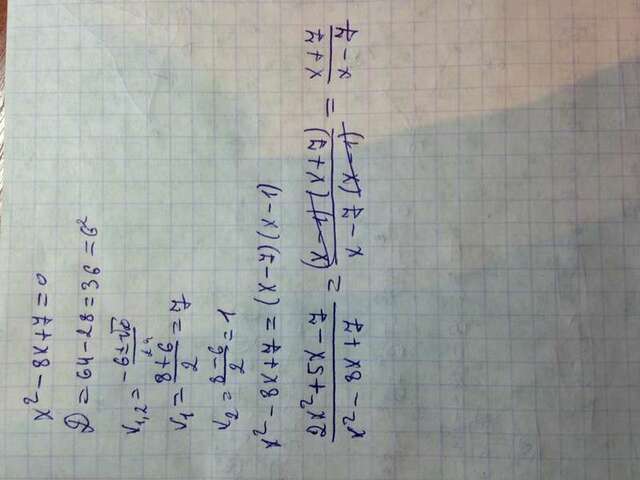 x² - 8x + 7 = 0
D = 64 - 28 = 36 = 6²
x₁,₂ = (-б ± √D) / 2a
x₁ = (8 + 6) / 2 = 7
x₂ = (8 - 6) / 2 = 1
x² - 8x + 7 = (x - 7)(x - 1)
(2x² + 5x - 7) / (x² - 8x + 7) = ((x - 1)(x + 7)) / (x - 7 (x - 1)) = (x + 7) / (x - 7)